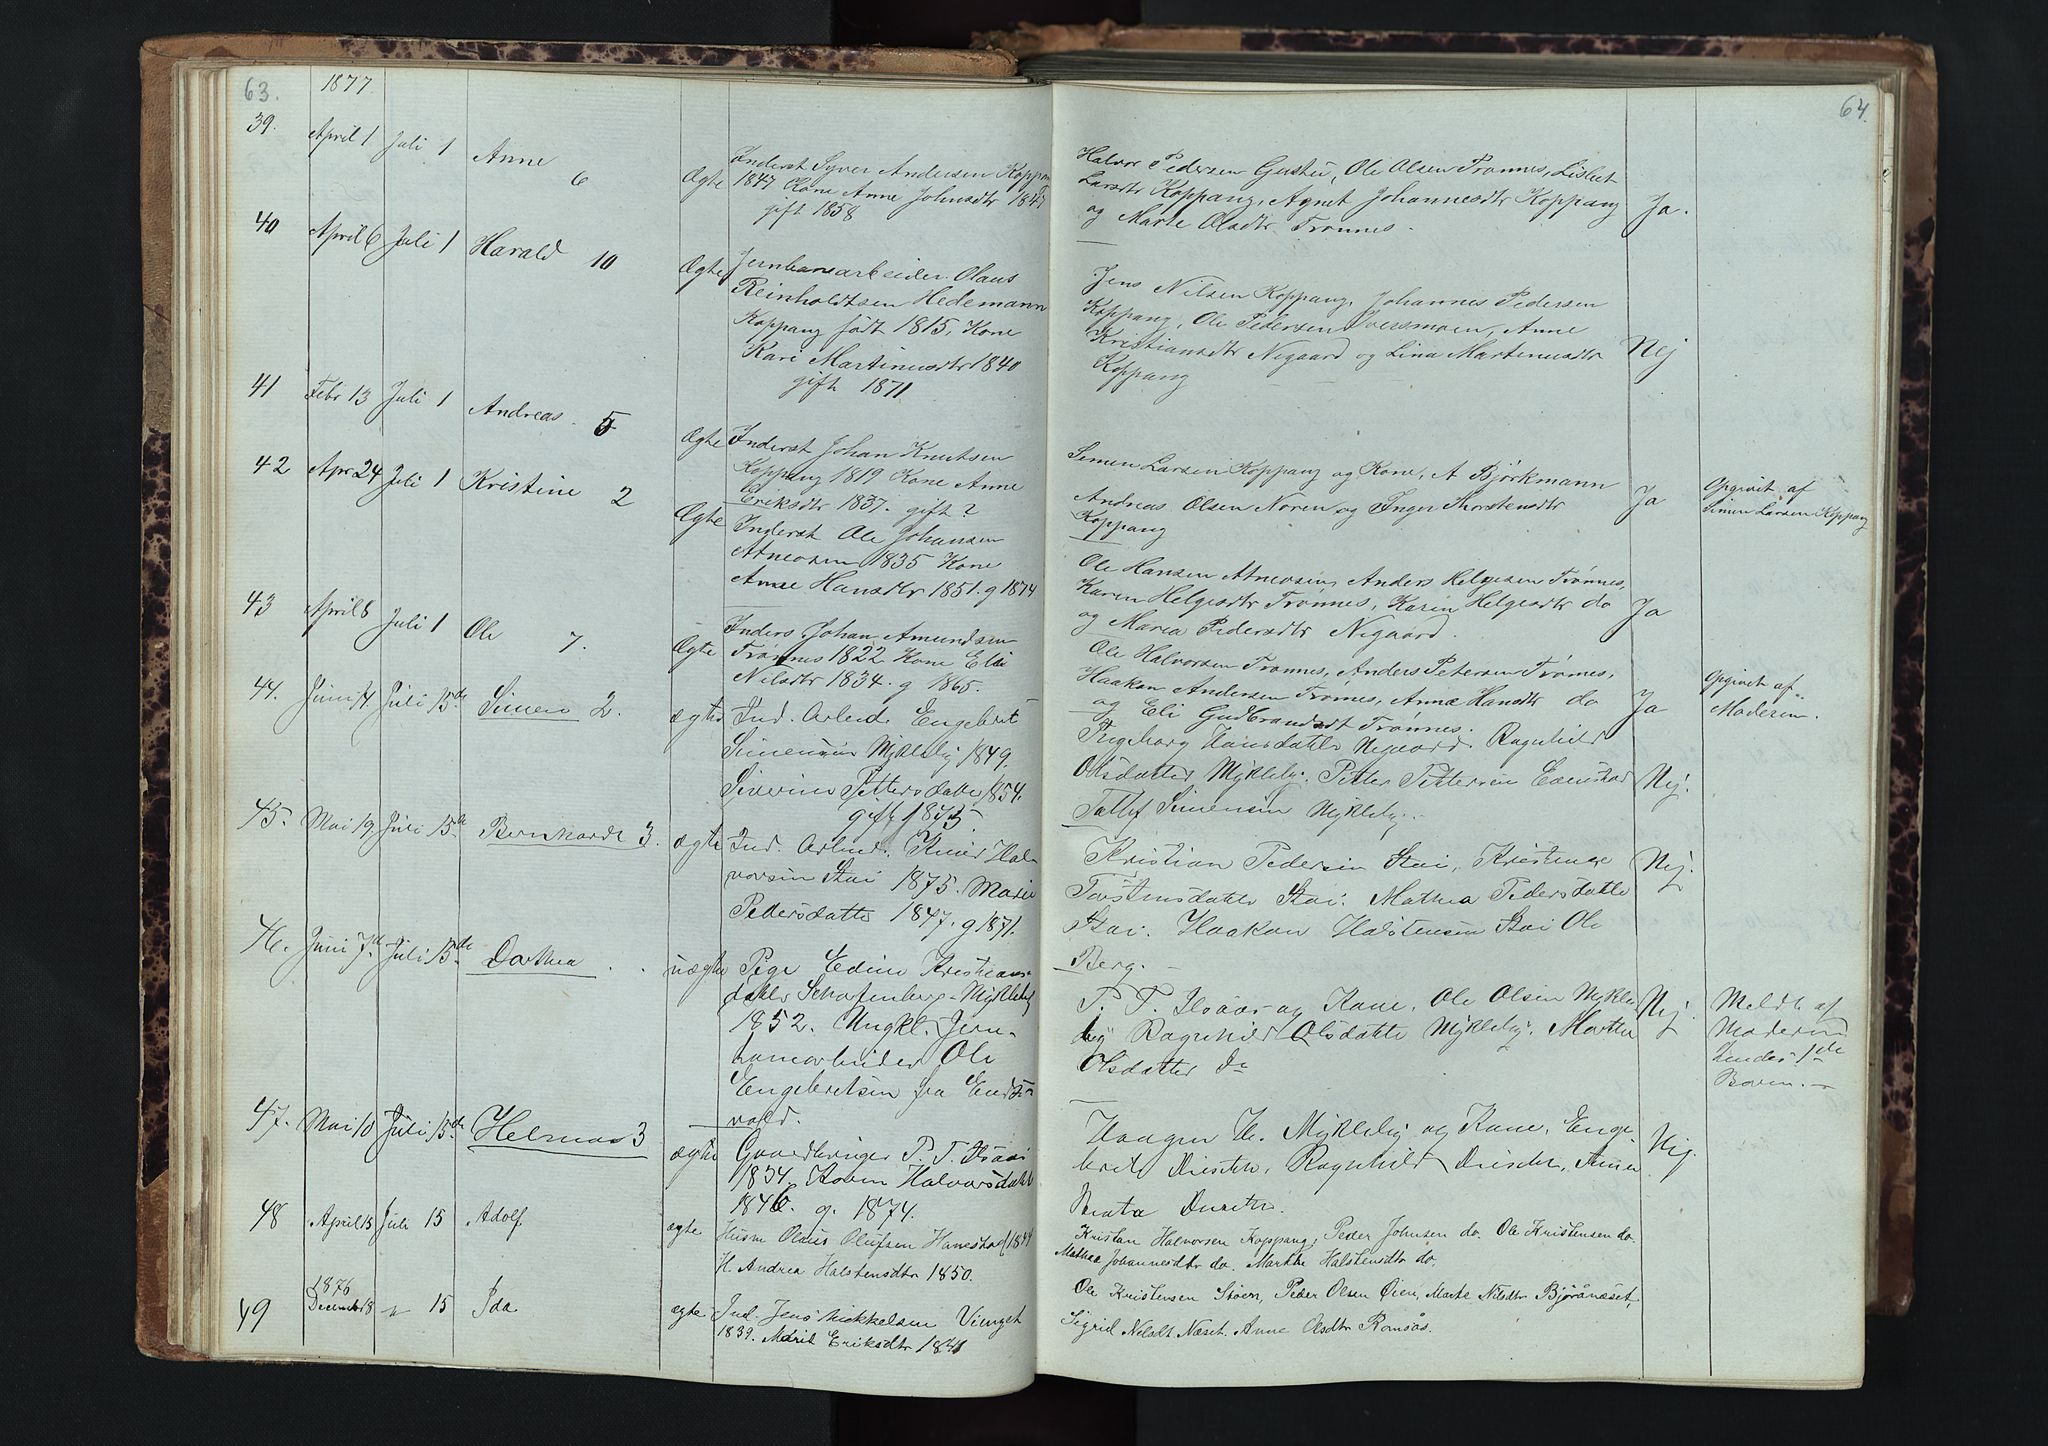 63.
1877
39.
April 1 Juli 1 Anne 6
Ægte Inderst Syver Andersen Koppang
1847 Kone Anne Johnsdtr 1847
gift 1858
40
April 6 Juli 1 Harald 10
Ægte Jernbanearbeider Olaus
Reinholdtsen Hedemann
Koppang født 1815, Kone
Kari Martinusdtr 1840
gift 1871
41
Febr 13 Juli 1 Andreas 5
Ægte Inderst Johan Knutsen
Koppang 1819 Kone Anne
Eriksdtr 1837. gift ?
42
Apr 24 Juli 1 Kristine 2
Ægte Inderst Ole Johansen
Atneosen 1835 Kone
Anne Hansdtr 1851. g 1874
43
April 8 Juli 1 Ole 7.
Ægte Inders. Johan Amundsen
Trønnes 1822 Kone Eli
Nilsdtr 1834. g 1865.
44. Juni 14 Juli 15de Simen 2.
ægte Ind. Arbeid. Engebret
Simensen Mykleby 1849.
Siverine Pettersdatter 1854.
gift 1875
45. Mai 19 Juli 15de Bernhardt 3.
ægte Ind. Arbeid. Hal-
vorsen Stai 1875. Marie
Pedersdatter 1847. g 1871.
46. Juni 7d Juli 15de Dorthea
uægte Pige Edine Kristians-
datter Scharfenberg-Mykleby
1852. Ungkl. Jern-
banearbeider Ole
Engebretsen fra Eids-
vold.
47. Mai 10 Juli 15de Helmar 3
ægte Gaardbruger P. T. Ilsaas
1834. Halvorsdatter
1846. g. 1874.
48 April 15 Juli 15 Adolf
ægte Husm Olaus Olufsen Hanestad (1844
H. Andrea Halstensdtr 1850.
1876
49 December 18 " 15 Ida
ægte Ind. Jens Mikkelsen Vinget
1839. Marit Eriksdtr 1841
64.
Halvor Pedersen Gustu, Ole Olsen Trønnes, Lisbet
Larsdtr Koppang, Agnet Johannesdtr Koppang
og Marte Olsdtr Trønnes.
Ja.
Jens Nilsen Koppang, Johannes Pedersen
Koppang, Ole Pedersen Iversmoen, Anne
Kristiansdtr Nygaard og Lina Martinusdtr
Koppang
Nej
Simen Larsen Koppang og Kone, A Bjørkmann
Andreas Olsen Noren og Inger Thorstensdtr
Koppang
Ja
Opgivet af
Simen Larsen Koppang
Ole Hansen Atneosen, Anders Helgesen Trønnes,
Karen Helgesdtr Trønnes, Karin Helgesdtr do
og Maria Pedersdtr Nygaard.
Ja
Ole Halvorsen Trønnes, Anders Petersen Trønnes,
Haakon Andersen Trønnes, Anne Hansdtr do
og Eli Gudbrandsdt Trønnes.
Ja
Opgivet af
Moderen.
Ingeborg Hansdatter Nygaard. Ragnhild
Olsdatter Mykleby. Petter Pettersen Evenstad
Tollef Simensen Mykleby.
Nej.
Kristian Pedersen Stai, Kristense
Torstensdatter Stai. Mathea Pedersdatter
Stai. Haakon Halstensen Stai Ole
Berg.
Nej.
P. T. Ilsaas og Kone. Ole Olsen Mykle
by Ragnhild Olsdatter Mykleby. Marthe
Olsdatter Do
Nej
Meldt af
Moderen
hendes 1de
Barn.
Haagen H. Mykleby og Kone. Enge-
bret Ragnhild
Beata
Nej.
Kristian Halvorsen Koppang, Peder Johnsen do. Ole Kristensen do.
Mathea Johannesdtr do. Marthe Halstensdtr do.
Ole Kristensen Støen, Peder Olsen Øien, Marte Nilsdtr Bjøråneset,
Sigrid Nilsdt. Næset. Anne Olsdtr Romsås.